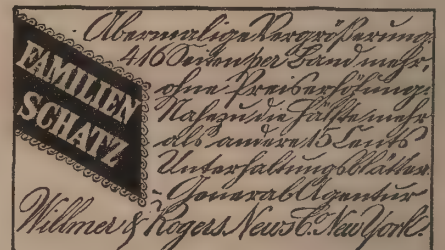 FAMILIEN
SCHATZ
Abermalige Vergrößerung.
416 Seiten per Band mehr,
ohne Preiserhöhung.
Nahezu die Hälfte mehr
als andere 15 Cents
Unterhaltungsblätter.
General Agentur
Willmer & Rogers News C. New York.